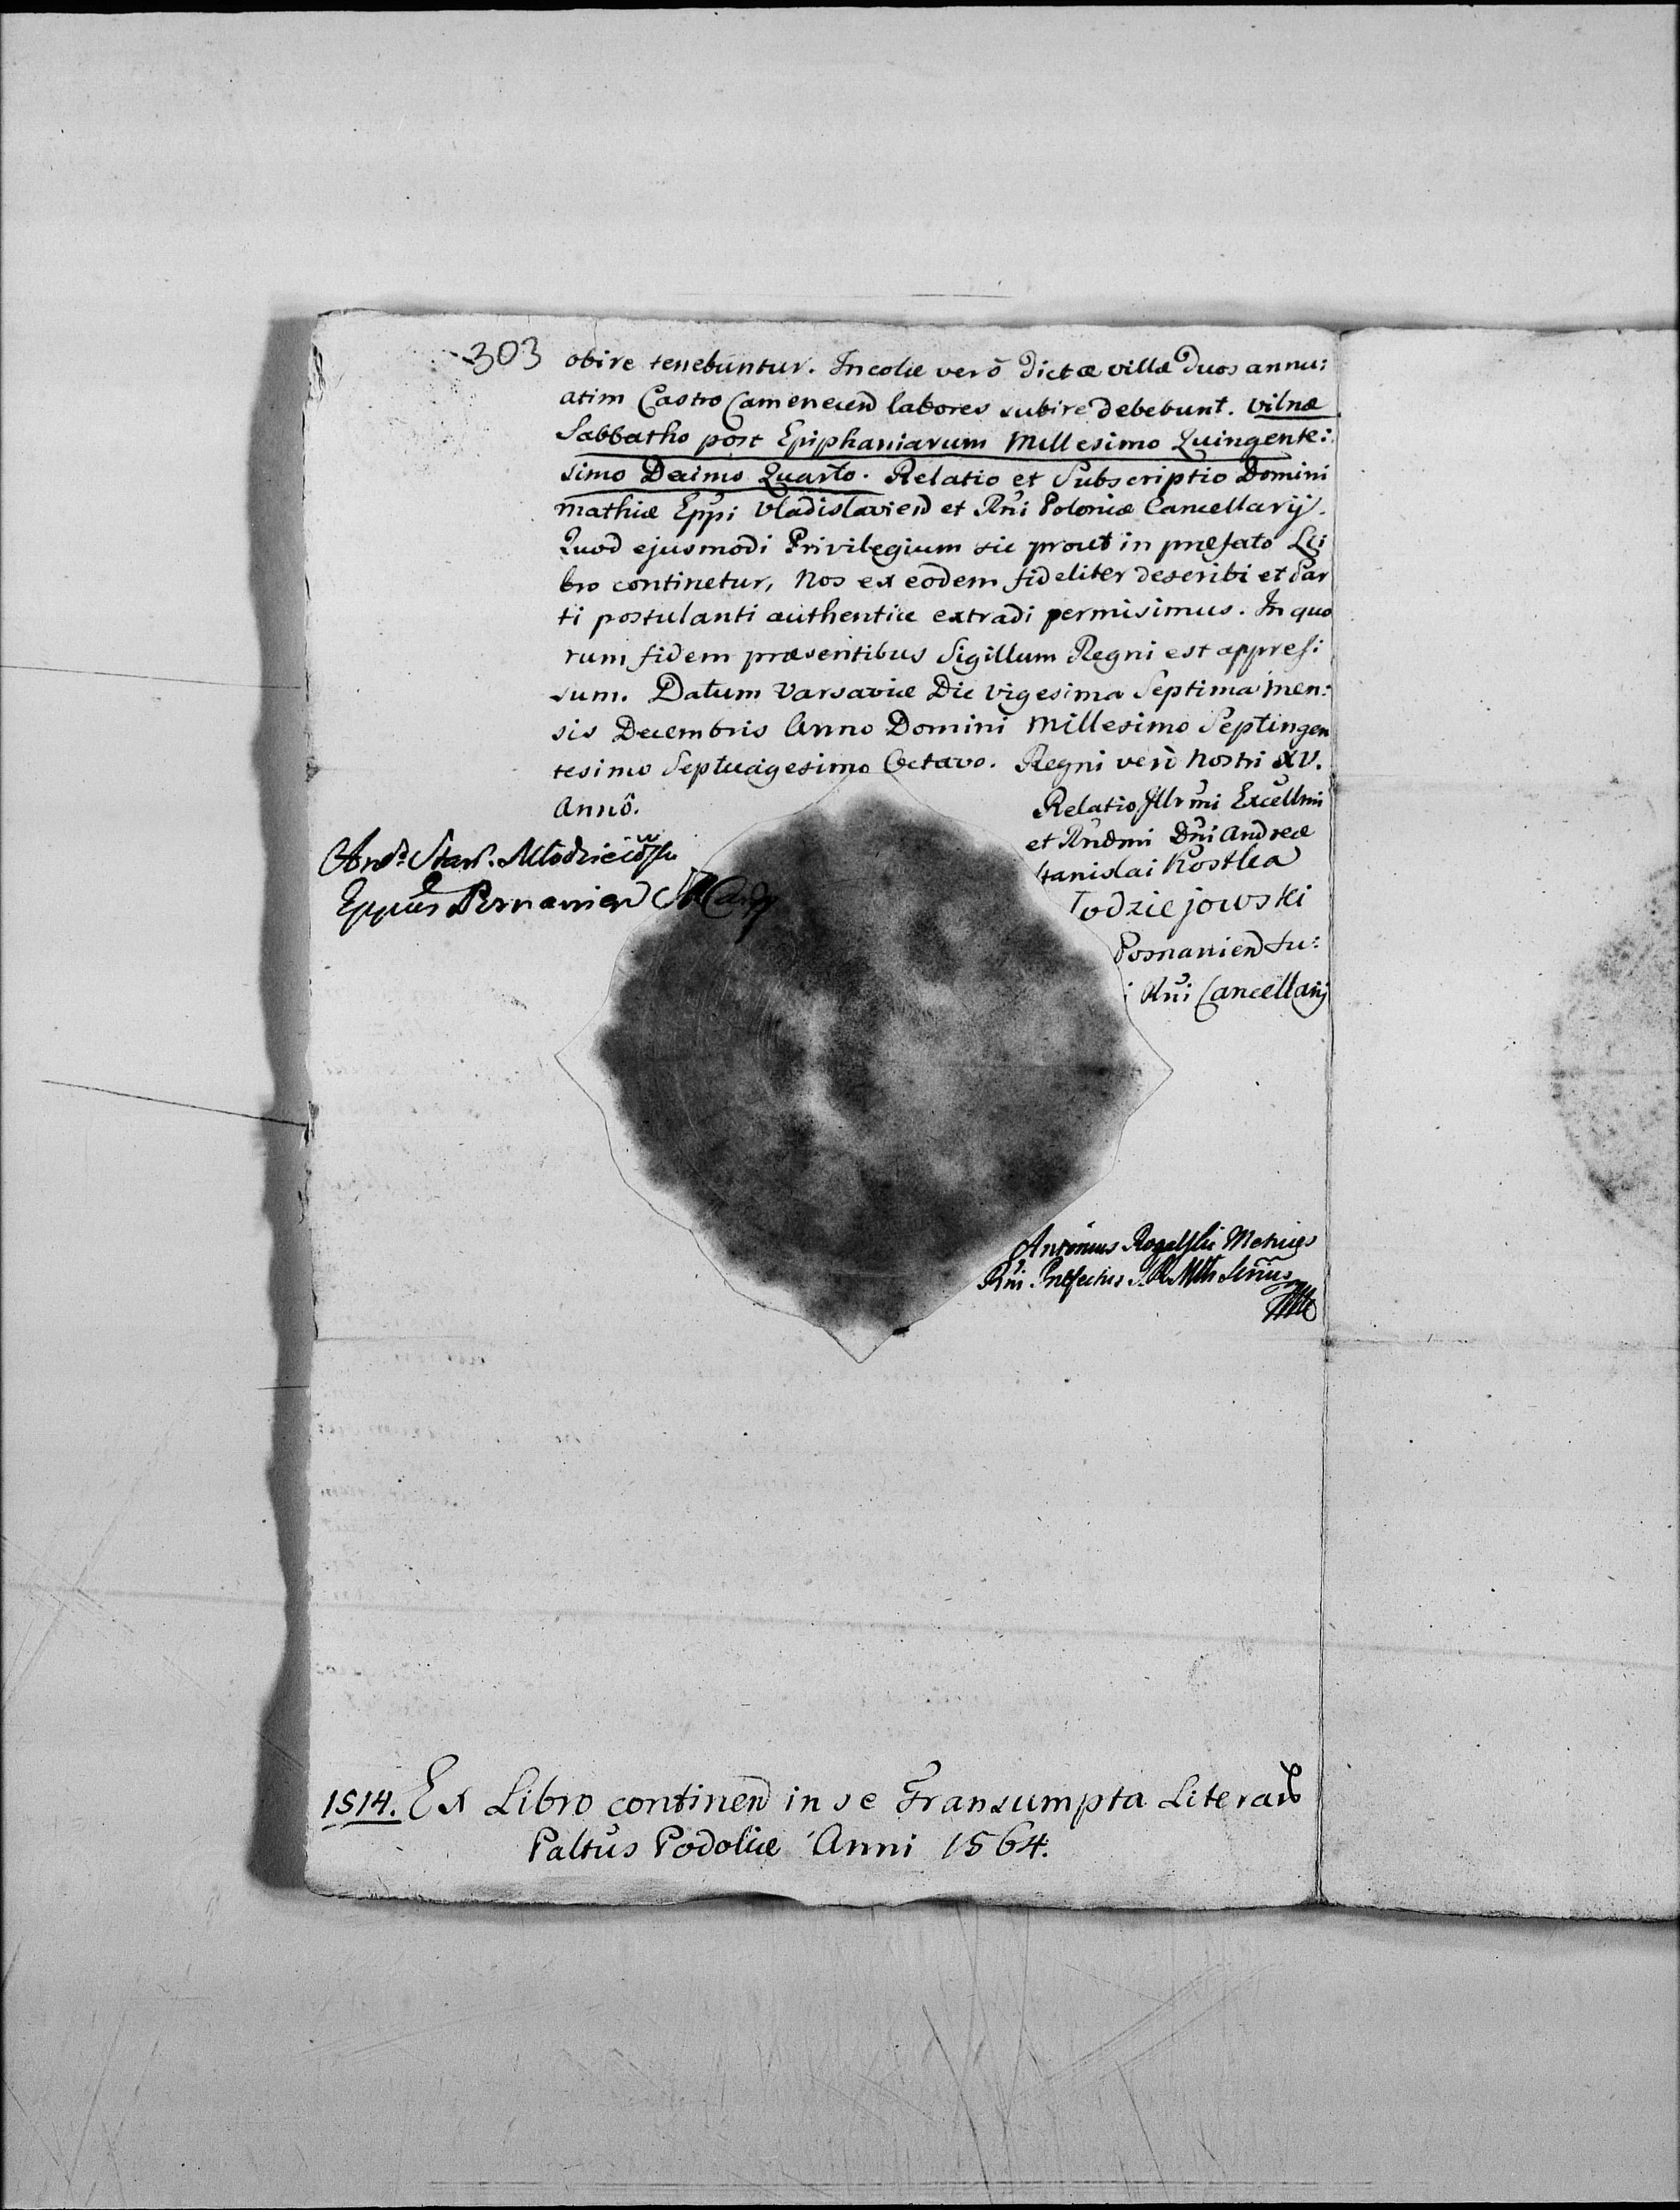 303
obire tenebuntur. Incolæ verò dictæ villæ duos annu:
atim Castro Camenecen labores subire debebunt. Vilnæ
Sabbatho post Epiphaniarum Millesimo Quingente:
simo Decimo Quarto. Relatio et Subscriptio Domini
Mathiæ Eppi Vladislavien et Rni Poloniæ Cancellarij.
Quod ejusmodi Privilegium sic prout in præfato Li
bro continetur, Nos ex eodem fideliter describi et Par
ti postulanti authentice extradi permisimus. In quo
rum fidem præsentibus Sigillum Regni est appres:
sum. Datum Varsaviæ Die Vigesima Septima Men:
sis Decembris Anno Domini Millesimo Septingen
tesimo Septuagesimo Octavo. Regni verò Nostri XV.
Annô.
Relatio Illrmi Excellmi
et Rndmi Dni Andreæ
tanislai Kostka
łodziejowski
Posnanien Su:
i Rni Cancellarij
Andr. Stan. Młodzieiowski
Eppus Posnanien
Antonius Rogalski Metrices
Rni Præfectus S. R. Mtis Srius
1514. Ex Libro continen in se Transumpta Literar
Paltus Podoliæ Anni 1564.